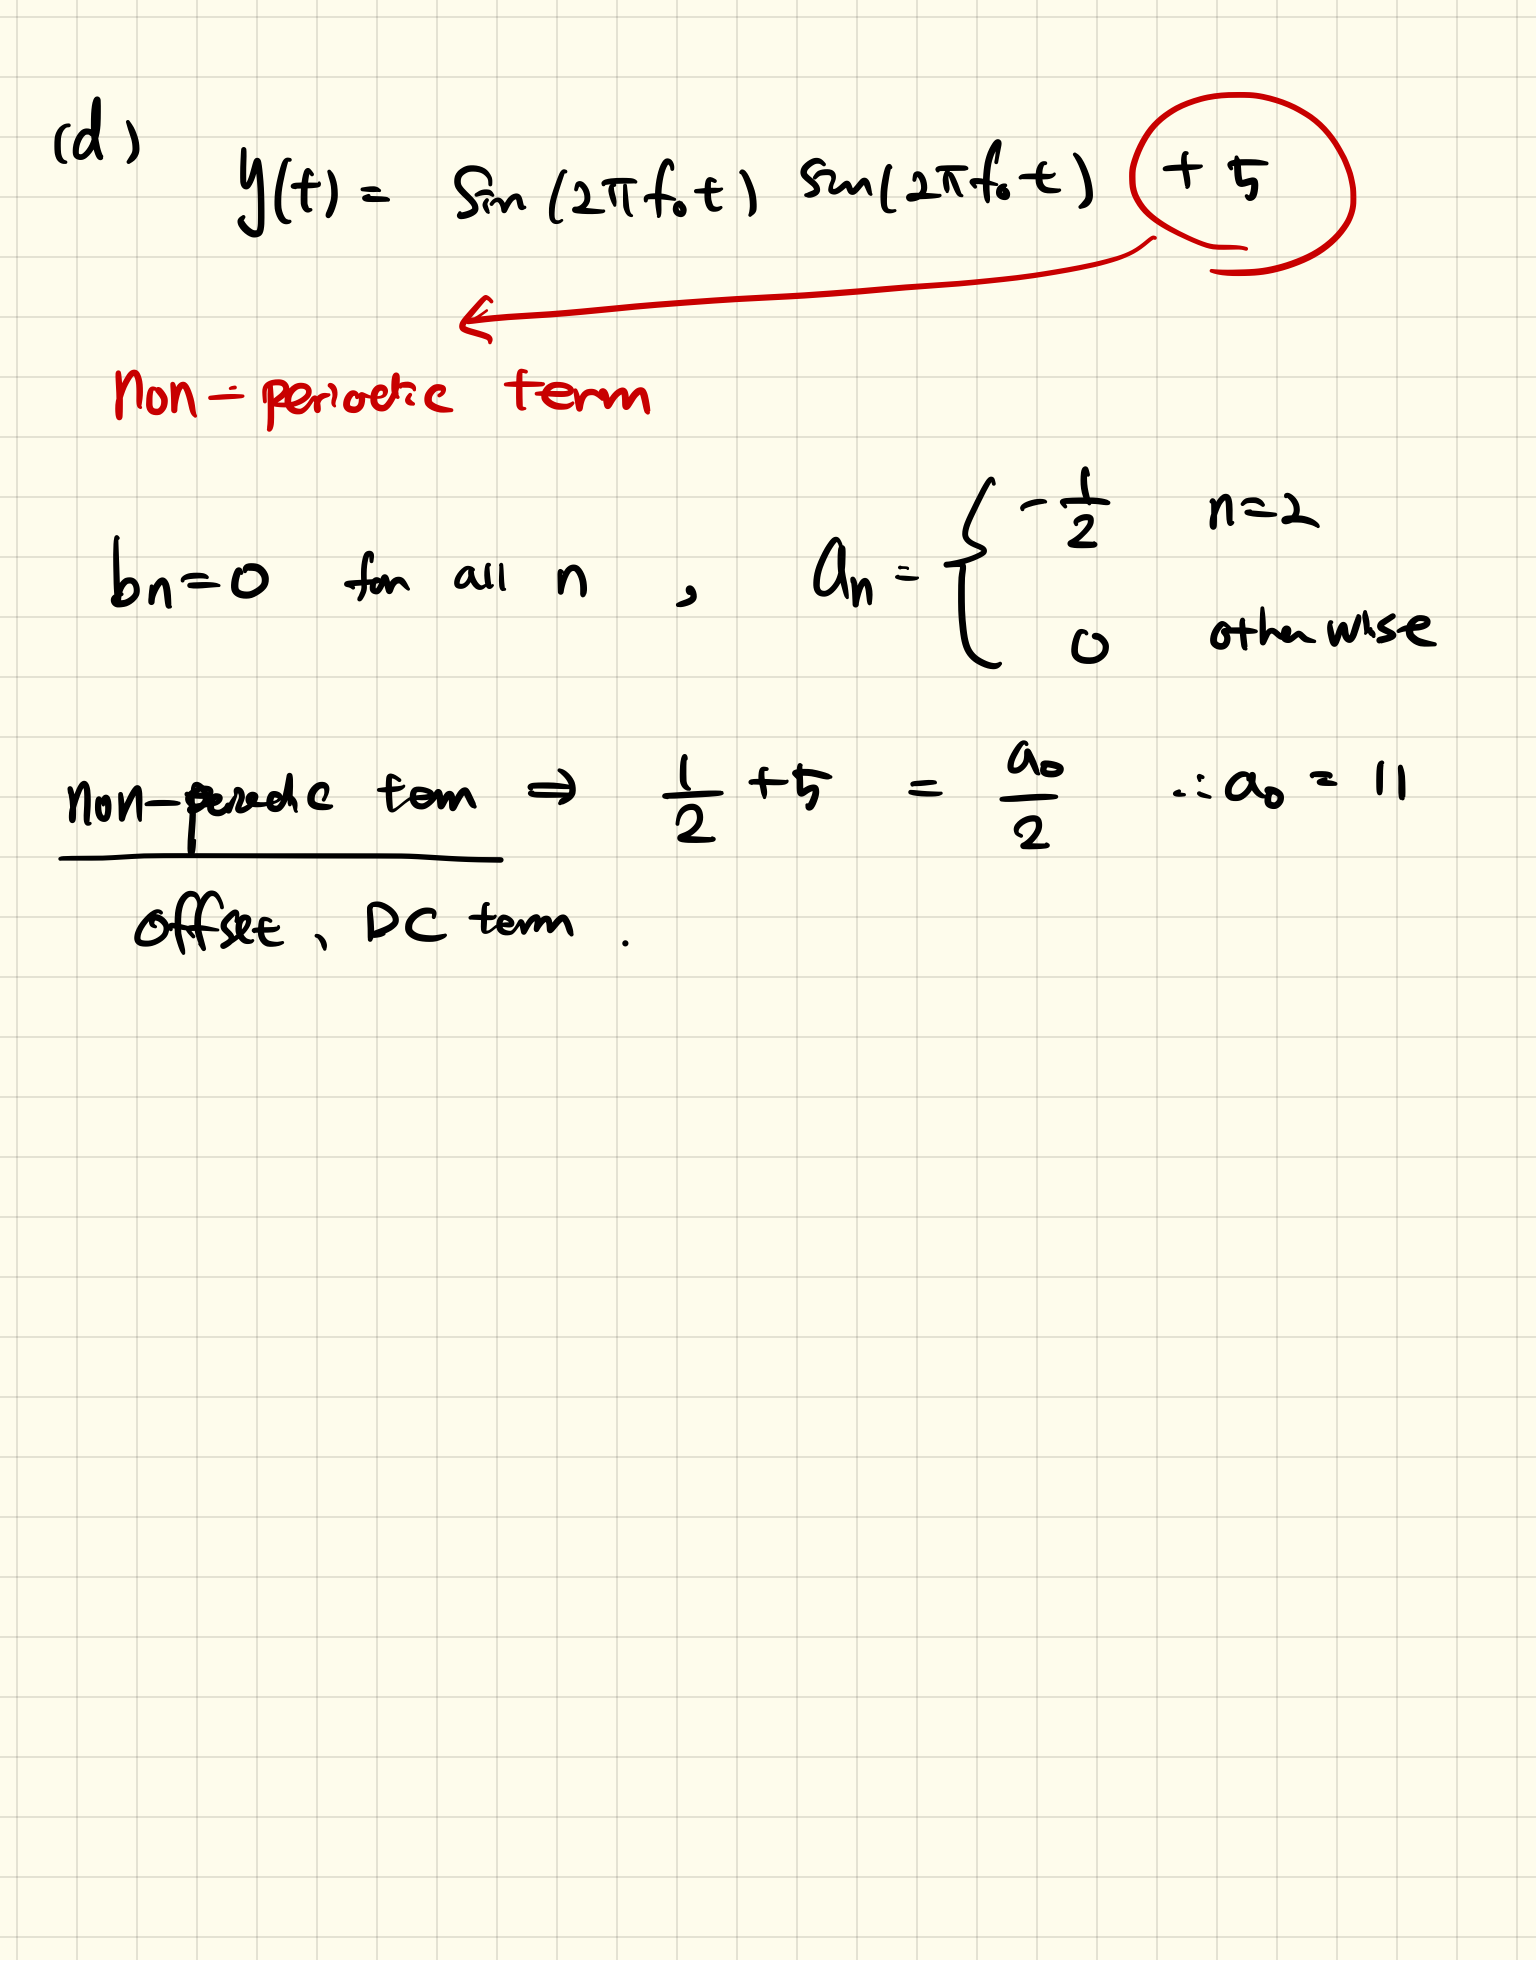 (d) y(t) = sin(2πf₀t) sin(2πf₀t) + 5
non-periodic term
bn=0 for all n , an = { -1/2 n=2
0 otherwise
non-periodic term ⇒ 1/2 + 5 = a₀/2 ∴ a₀ = 11
offset, DC term.